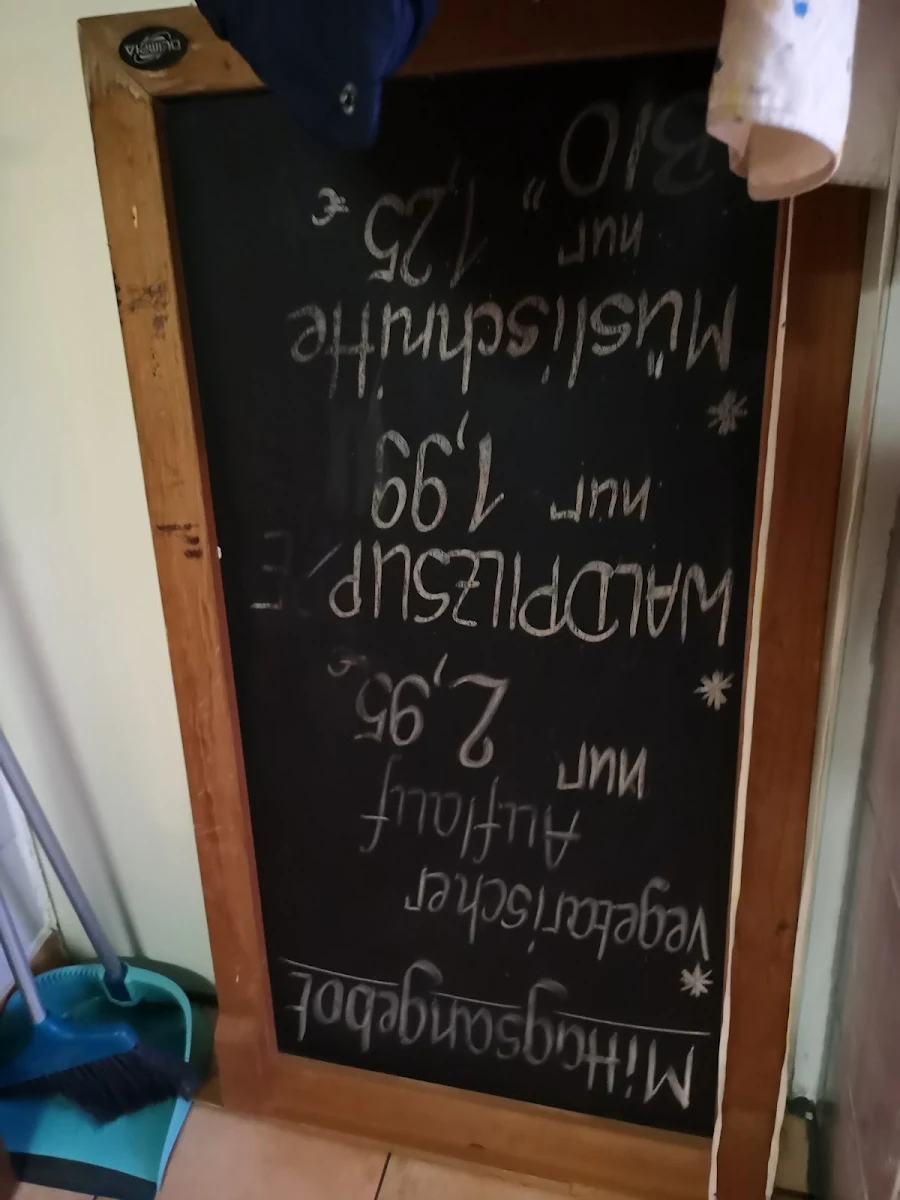 Mittagsangebot
* vegetarischer
Auflauf
nur 2,95 €
* WALDPILZSUPPE
nur 1,99
* Müslischnitte
nur 1,25 €
" BIO